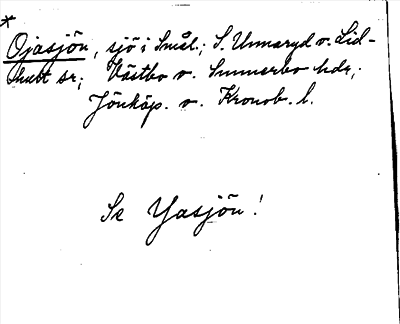 *
Ojasjön, sjö i Smål.; S. Unnaryd o. Lid-
hult sr; Västbo o. Sunnerbo hdr;
Jönköp. o. Kronob. l.
Se Yasjön!